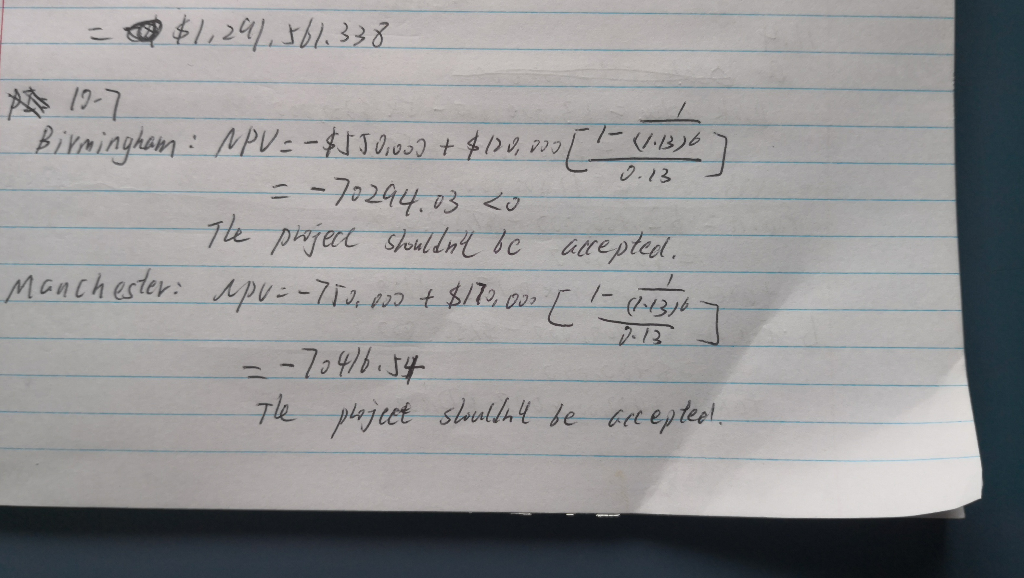 = $1,291,561.338
10-7
Birmingham: NPV = -$550,000 + $120,000 [ (1 - 1/(1.13)6) / 0.13 ]
= -70294.03 <0
The project shouldn't be accepted.
Manchester: NPV = -750,000 + $170,000 [ (1 - 1/(1.13)6) / 0.13 ]
= -70416.54
The project shouldn't be accepted.